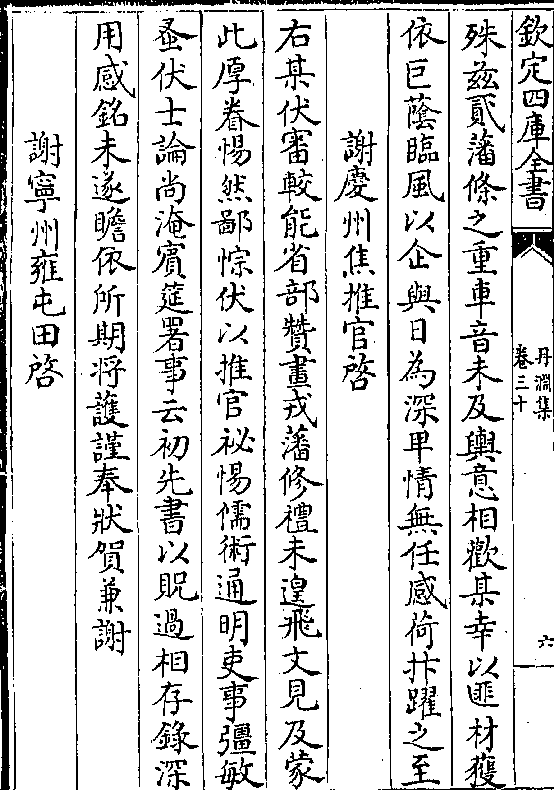 欽定四庫全書
丹淵集
卷三十
六
殊兹貳藩條之重車音未及輿意相歡某幸以匪材獲
依巨蔭臨風以企與日為深甲情無任感荷抃躍之至
謝慶州焦推官啓
右某伏審較能省部贊畫戎藩修禮未遑飛文見及蒙
此厚眷惕然鄙悰伏以推官祕惕儒術通明吏事彊敏
蚤伏士論尚淹賓筵署事云初先書以貺過相存錄深
用感銘未遂瞻依所期將護謹奉狀賀兼謝
謝寧州雍屯田啓